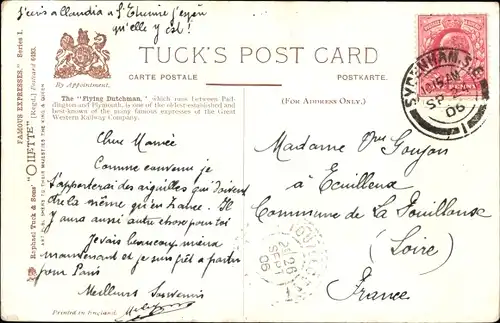 J'écris à Claudia à St Etienne j'espère
qu'elle y est!
TUCK'S POST CARD
CARTE POSTALE POSTKARTE.
By Appointment.
(For Address Only.)
The "Flying Dutchman," which runs between Pad-
dington and Plymouth, is one of the oldest established and
best-known of the many famous expresses of the Great
Western Railway Company.
FAMOUS EXPRESSES. Series I.
"OILETTE" [Regd.] Postcard
Raphael Tuck & Sons'
ART PUBLISHERS TO THEIR MAJESTIES THE KING & QUEEN
SYDENHAM. S.E.
SP
06
PENNY
Chère
Comme convenu je
t'apporterai des aiguilles qui
de la même qu'en France. Il
y aura aussi autre chose pour toi
Je vais beaucoup mieux
maintenant et je suis prêt à partir
pour Paris
Meilleurs Souvenirs
Madame Goujon
à
Commune de La Fouillouse
(Loire)
France
SEPT
06
Printed in England.